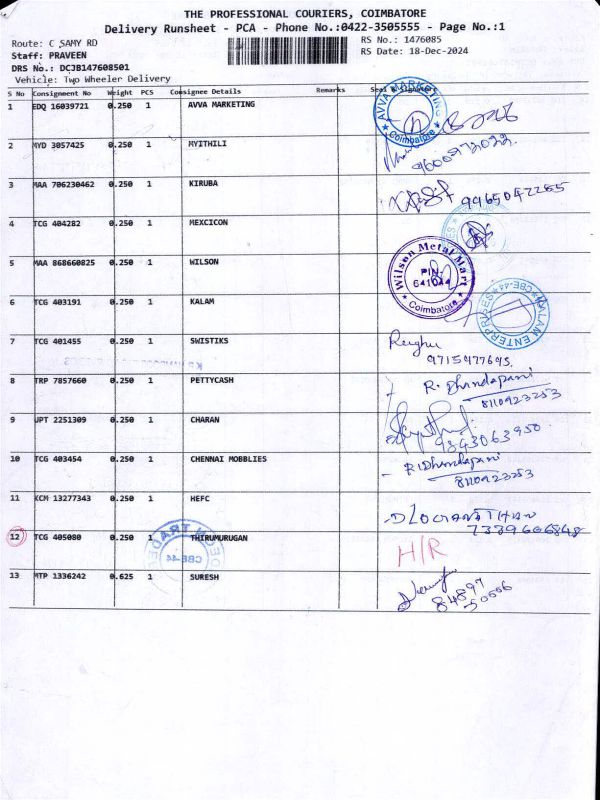 THE PROFESSIONAL COURIERS, COIMBATORE
Delivery Runsheet - PCA - Phone No.:0422-3505555 - Page No.:1
Route: C SAMY RD RS No.: 1476085
Staff: PRAVEEN RS Date: 18-Dec-2024
DRS No.: DCJB147608501
Vehicle: Two Wheeler Delivery
S No Consignment No Weight PCS Consignee Details Remarks Seal & Signature
1 EDQ 16039721 0.250 1 AVVA MARKETING AVVA MARKETING Coimbatore
2 MYD 3057425 0.250 1 MYITHILI
3 MAA 706230462 0.250 1 KIRUBA 9965042265
4 TCG 404282 0.250 1 MEXCICON
5 MAA 868660825 0.250 1 WILSON Wilson Metal Mart PIN- 641044 Coimbatore
6 TCG 403191 0.250 1 KALAM KALAM ENTERPRISES CBE-44
7 TCG 401455 0.250 1 SWISTIKS Raghu
9715477645
8 TRP 7857660 0.250 1 PETTYCASH R. Dhandapani
8110923253
9 JPT 2251309 0.250 1 CHARAN 9843063950
10 TCG 403454 0.250 1 CHENNAI MOBBLIES R. Dhandapani
8110923253
11 KCM 13277343 0.250 1 HEFC
7339606848
12 TCG 405080 0.250 1 THIRUMURUGAN H/R
13 MTP 1336242 0.625 1 SURESH 84897
50506